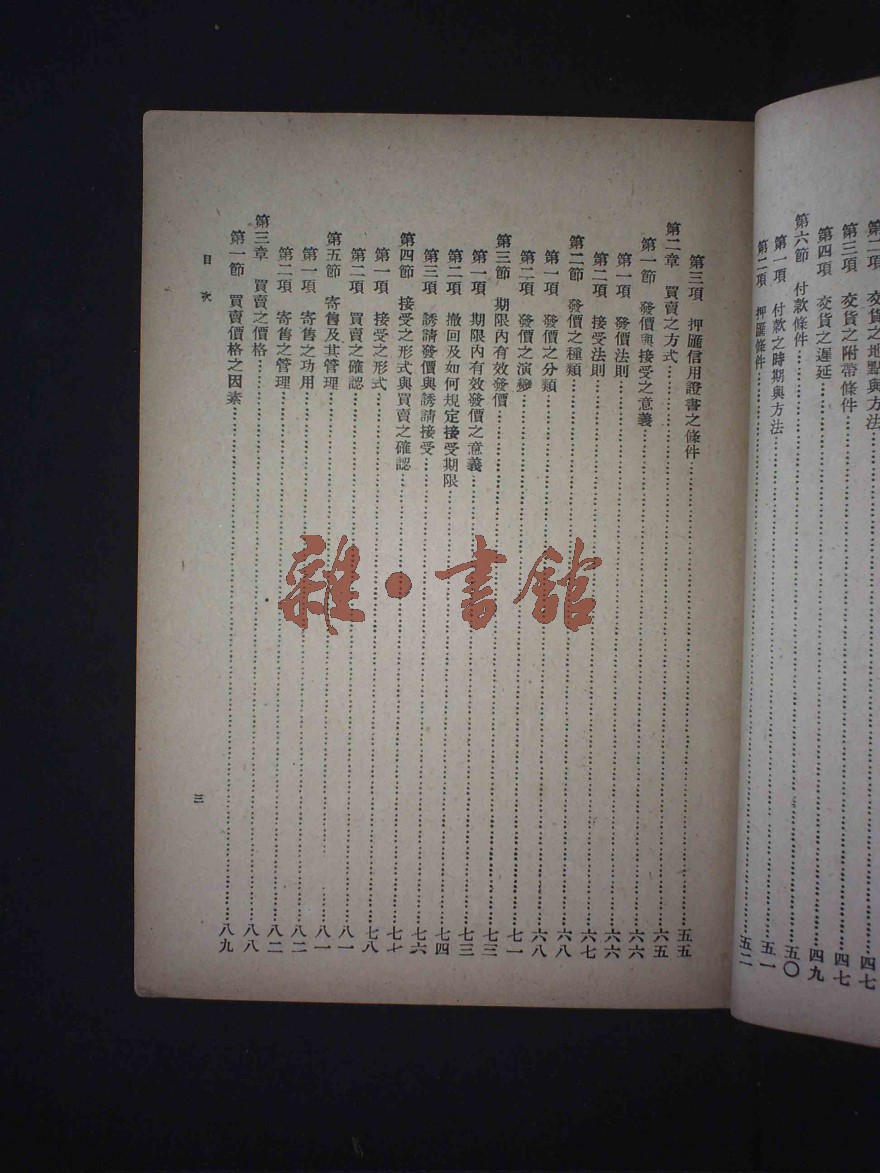 第二項 交貨之地點與方法……四七
第三項 交貨之附帶條件……四七
第四項 交貨之遲延……四九
第六節 付款條件……五〇
第一項 付款之時期與方法……五一
第二項 押匯條件……五二
第三項 押匯信用證書之條件……五五
第二章 買賣之方式……六五
第一節 發價與接受之意義……六六
第一項 發價法則……六六
第二項 接受法則……六七
第二節 發價之種類……六八
第一項 發價之分類……六八
第二項 發價之演變……七一
第三節 期限內有效發價……七三
第一項 期限內有效發價之意義……七三
第二項 撤回及如何規定接受期限……七四
第三項 誘請發價與誘請接受……七六
第四節 接受之形式與買賣之確認……七七
第一項 接受之形式……七八
第二項 買賣之確認……八一
第五節 寄售及其管理……八一
第一項 寄售之功用……八二
第二項 寄售之管理……八二
第三章 買賣之價格……八八
第一節 買賣價格之因素……八九
目次
三
雜·書館